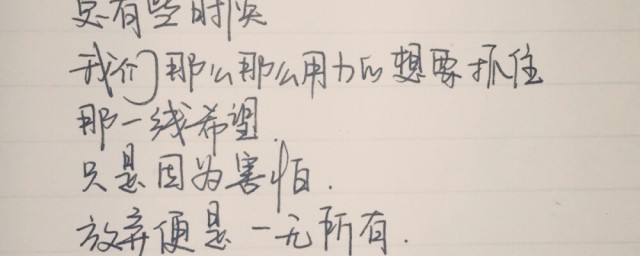 总有些时候
我们那么那么用力的想要抓住
那一线希望
只是因为害怕.
放弃便是一无所有.